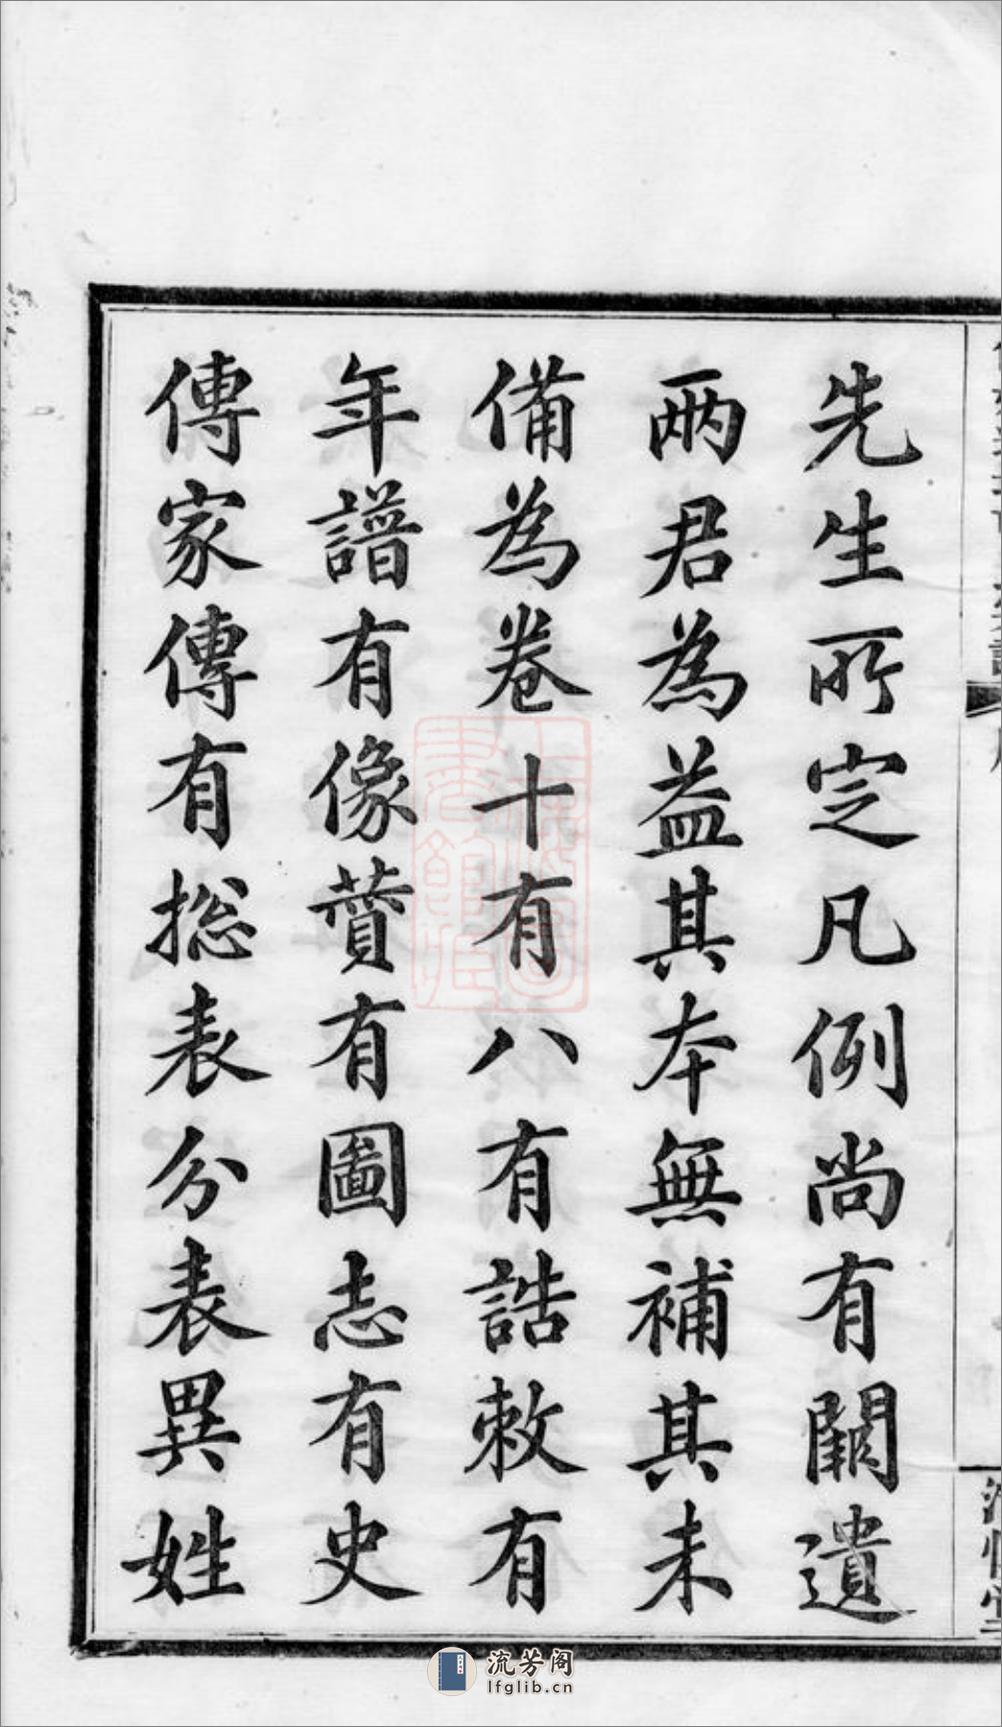 先生所定凡例尚有闕遺
兩君為益其本無補其未
備為卷十有八有誥敕有
年譜有像贊有圖志有史
傳家傳有総表分表異姓
流芳阁
lfglib.cn